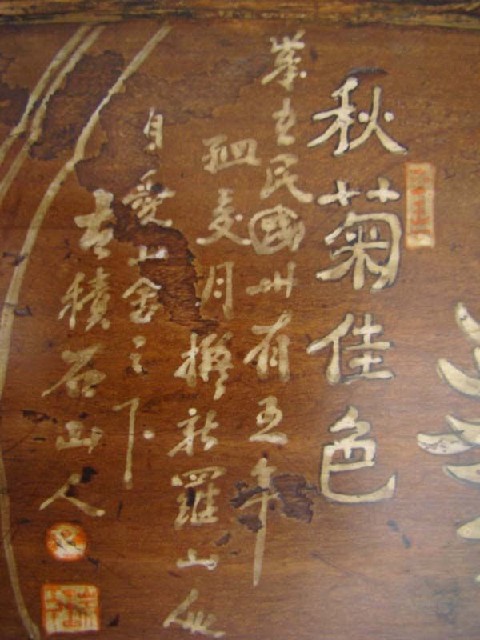 秋菊佳色
民國卅有五年
夏月於羅山
自愛山舍之下
古積石山人